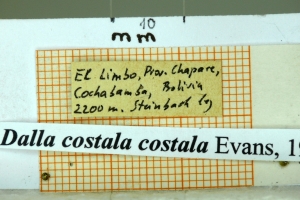 10
mm
El Limbo, Prov. Chapare,
Cochabamba, Bolivia
2200 m. Steinbach leg
Dalla costala costala Evans, 19